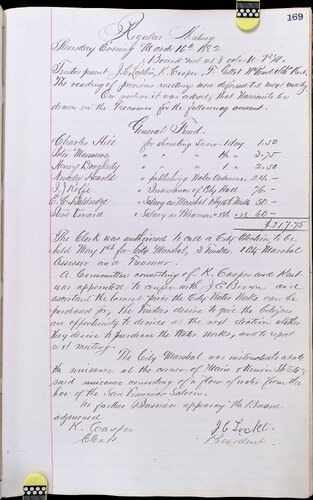 169
Regular Meeting
Thursday Evening March 16th 1882
Board met at 8 oclock P.M.
Trustees present, J. C. Locklin, K. Casper,
The reading of previous meeting was defered til next meeting
On motion it was ordered, that Warrants be
drawn on the Treasurer for the following amount.
General Fund.
Charles Hill for shoveling snow 1 day 1.50
Peter " " " 1½ " 2.75
Henry Daugherty " " " 1 " 2.50
Andrew " publishing Water Ordinance 24.-
" Insurance of City Hall 76.-
" Salary as Marshal 50-
" Salary as 60-
$217.75
The Clerk was authorized to call a City Election, to be
held May 1st for City Marshal, 3 Trustees, 1 City Marshal
Assessor and Treasurer.
A Committee consisting of K. Casper and Kent
was appointed to confer with J. E. Brown and
ascertain the lowest price the City Water Works can be
purchased for, The Trustees desire to give the Citizens
an opportunity to decide at the next election whether
they desire to purchase the Water Works, and to report
next meeting.
The City Marshal was instructed to abate
the nuisance at the corner of Main & Streets
said nuisance consisting of a flow of water from the
bar of the San Francisco Saloon.
No further Business appearing the Board
adjourned
K. Casper J. C. Locklin
Clerk President